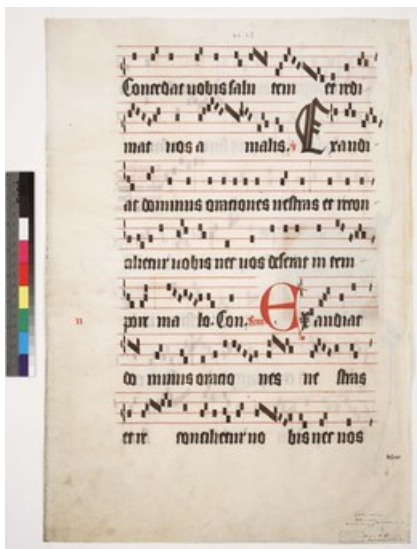 Concedat uobis salu tem et redi
mat uos a malis. Exaudi
at dominus orationes uestras et recon
cilietur uobis nec uos deserat in tem
pore ma lo. Con. Exaudiat
do minus oratio nes ue stras
et re concilietur uo bis nec uos